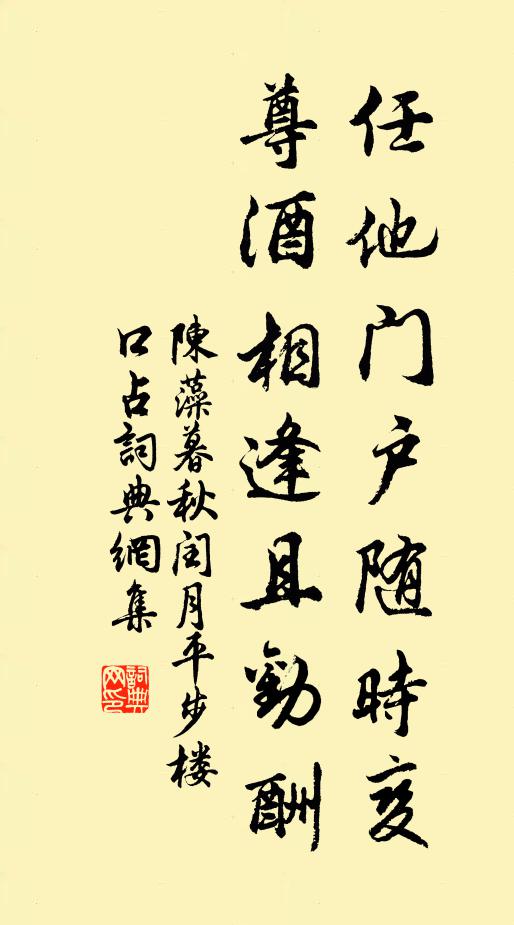 任他门户随時变
尊酒相逢且勸酬
陳藻暮秋閏月平步楼
口占詞典網集
詞典
网印